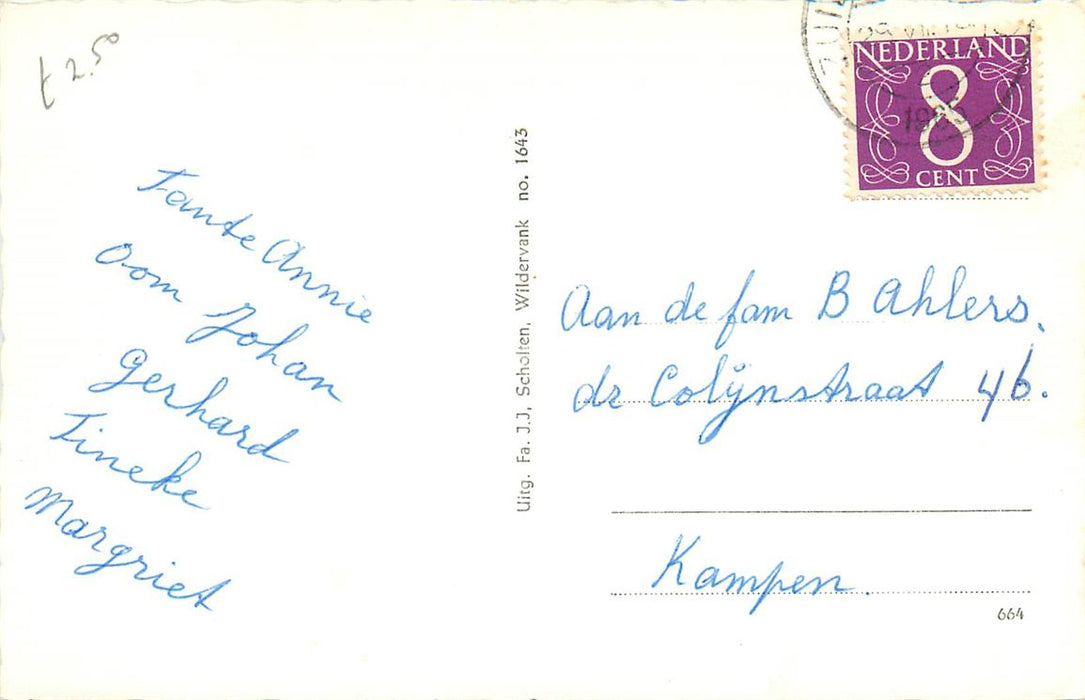 f 2.50
Tante Annie
Oom Johan
Gerhard
Tineke
Margriet
Uitg. Fa. J.J, Scholten, Wildervank no. 1643
NEDERLAND
8
CENT
Aan de fam B Ahlers.
dr Colijnstraat 46.
Kampen.
664